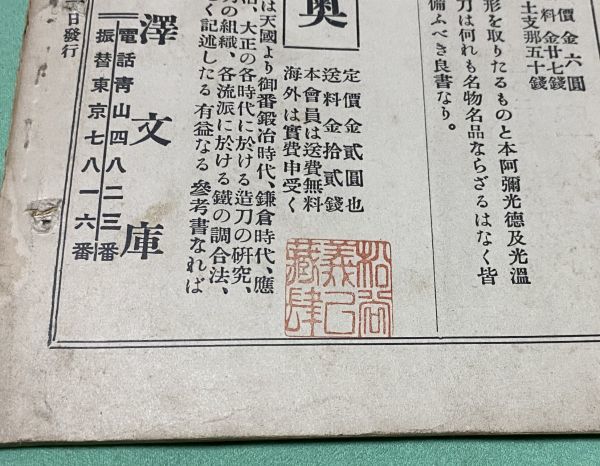 價金六圓
料金廿七錢
土支那五十錢
形を取りたるものと本阿彌光德及光溫
刀は何れも名物名品ならざるはなく皆
備ふべき良書なり。
奥
定價金貳圓也
送料金拾貳錢
本會員は送費無料
海外は實費申受く
は天國より御番鍛冶時代、鎌倉時代、應
大正の各時代に於ける造刀の硏究、
の組織、各流派に於ける鐵の調合法、
く記述したる有益なる參考書なれば
松谷
義己
藏肆
澤文庫
電話靑山四八二三番
振替東京七八一六番
日發行